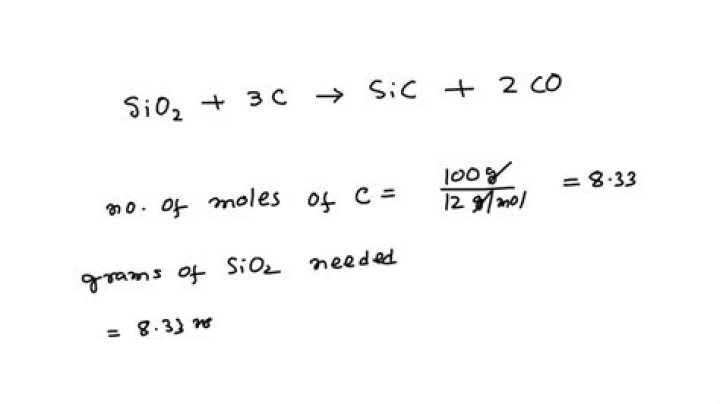 SiO₂ + 3C → SiC + 2CO
no. of moles of C = 100g / 12 g/mol = 8.33
grams of SiO₂ needed
= 8.33